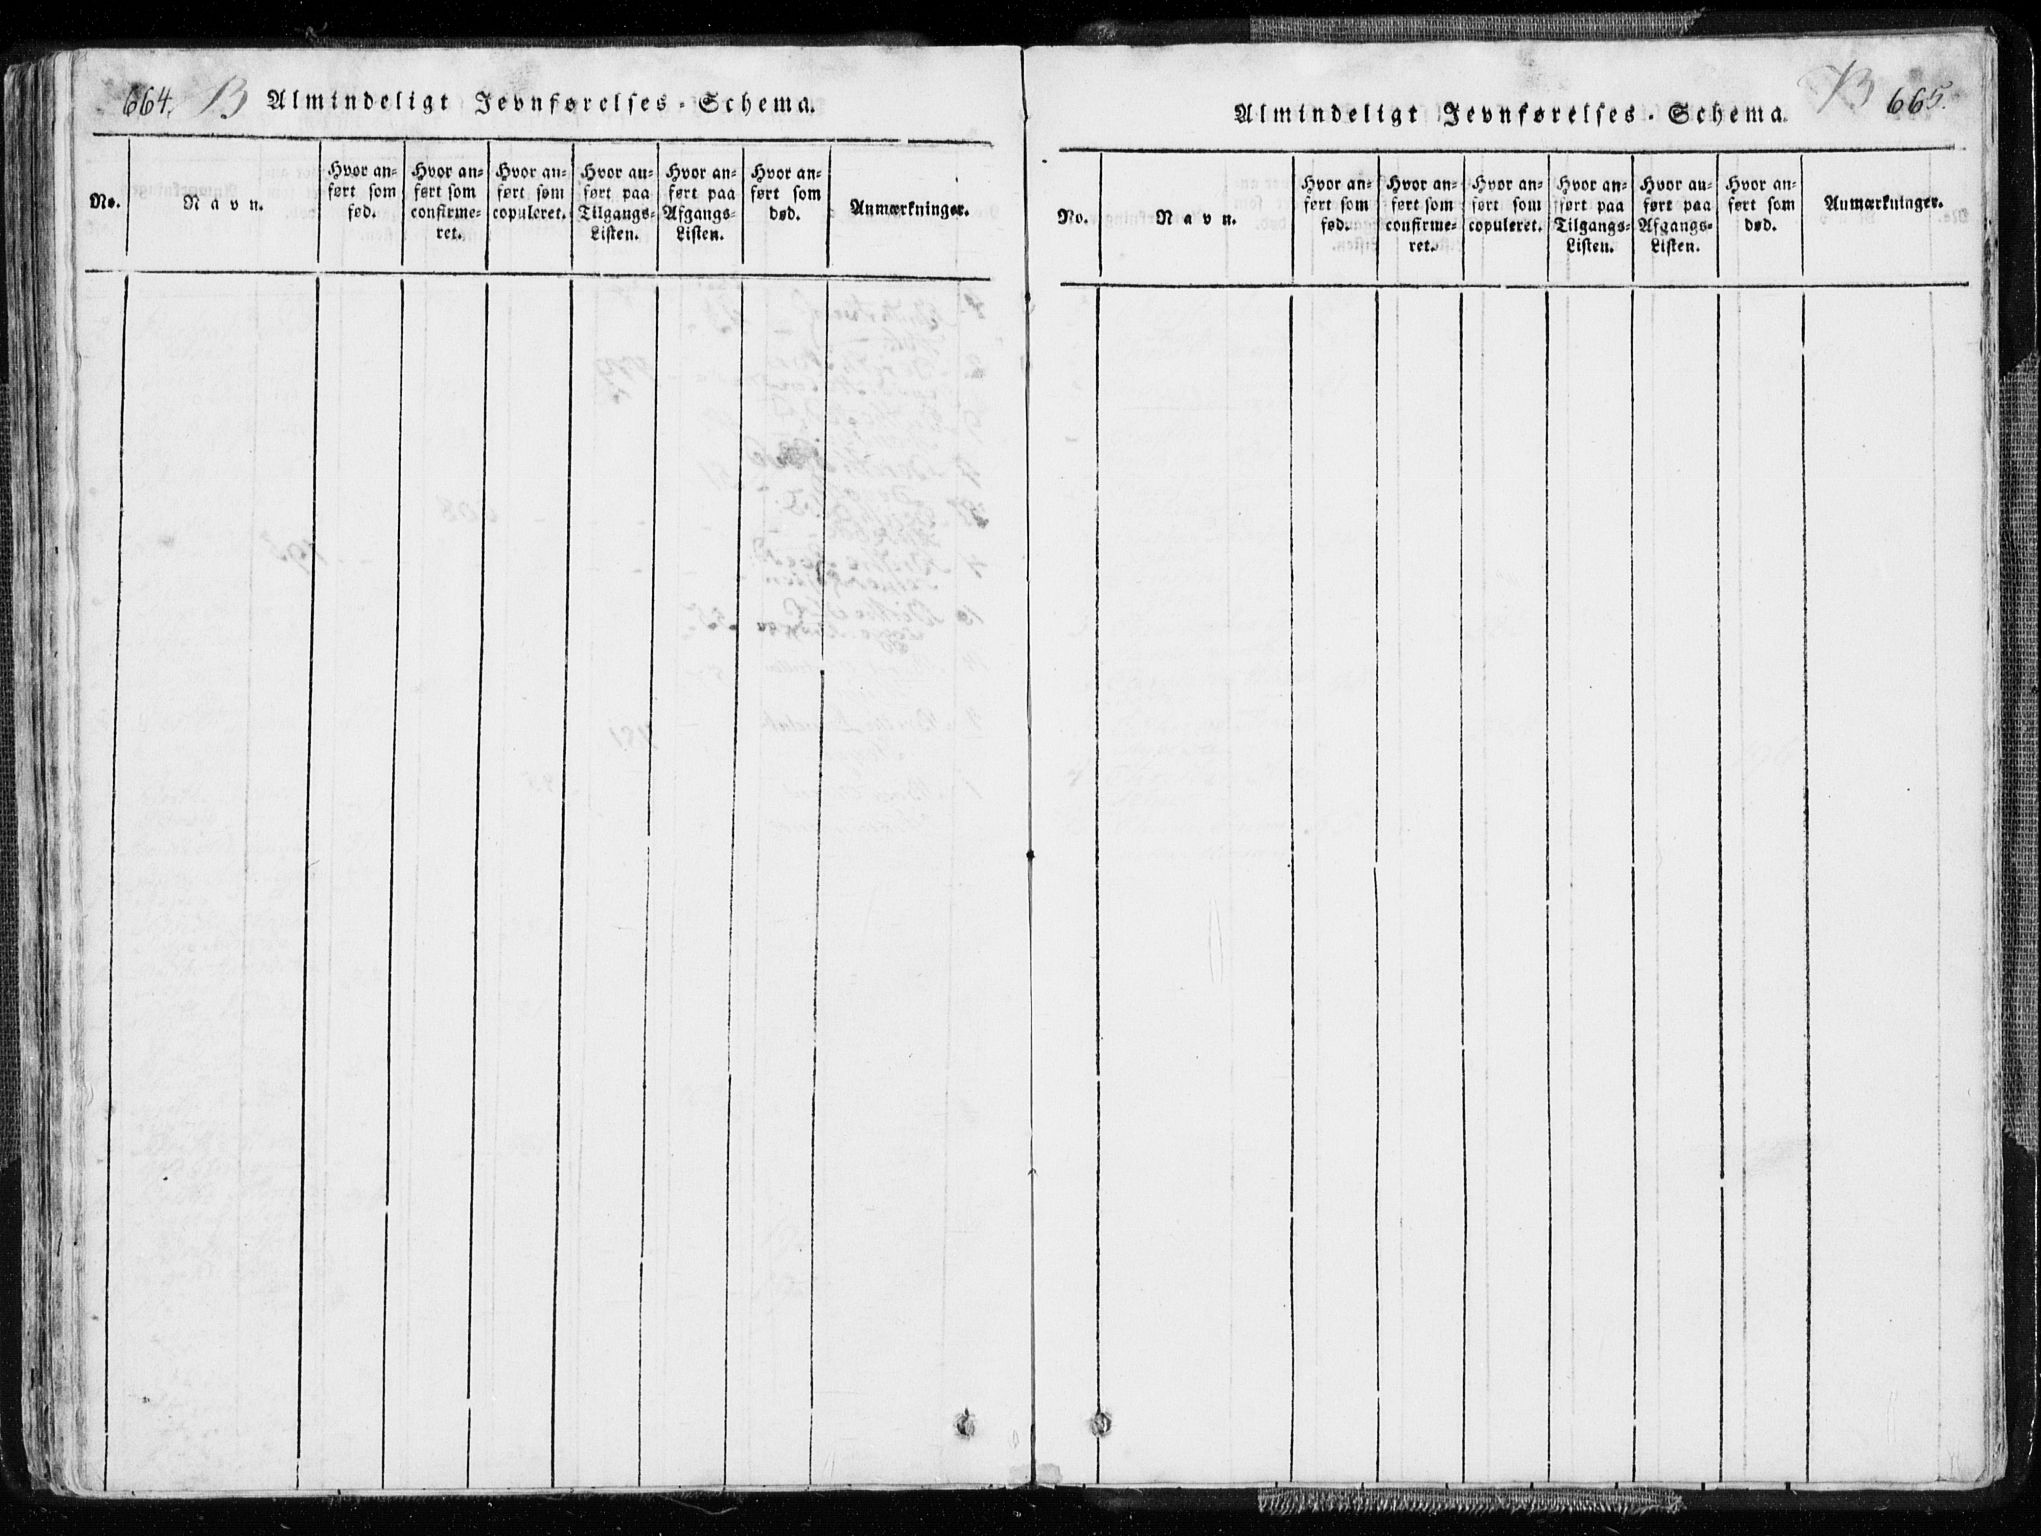 664. B Almindeligt Jevnførelses-Schema.
No.
Navn.
Hvor an-
ført som
fød.
Hvor an-
ført som
confirme-
ret.
Hvor an-
ført som
copuleret.
Hvor an-
ført paa
Tilgangs-
Listen.
Hvor an-
ført paa
Afgangs-
Listen.
Hvor an-
ført som
død.
Anmærkninger.
Almindeligt Jevnførelses-Schema. B 665.
No.
Navn.
Hvor an-
ført som
fød.
Hvor an-
ført som
confirme-
ret.
Hvor an-
ført som
copuleret.
Hvor an-
ført paa
Tilgangs-
Listen.
Hvor an-
ført paa
Afgangs-
Listen.
Hvor an-
ført som
død.
Anmærkninger.